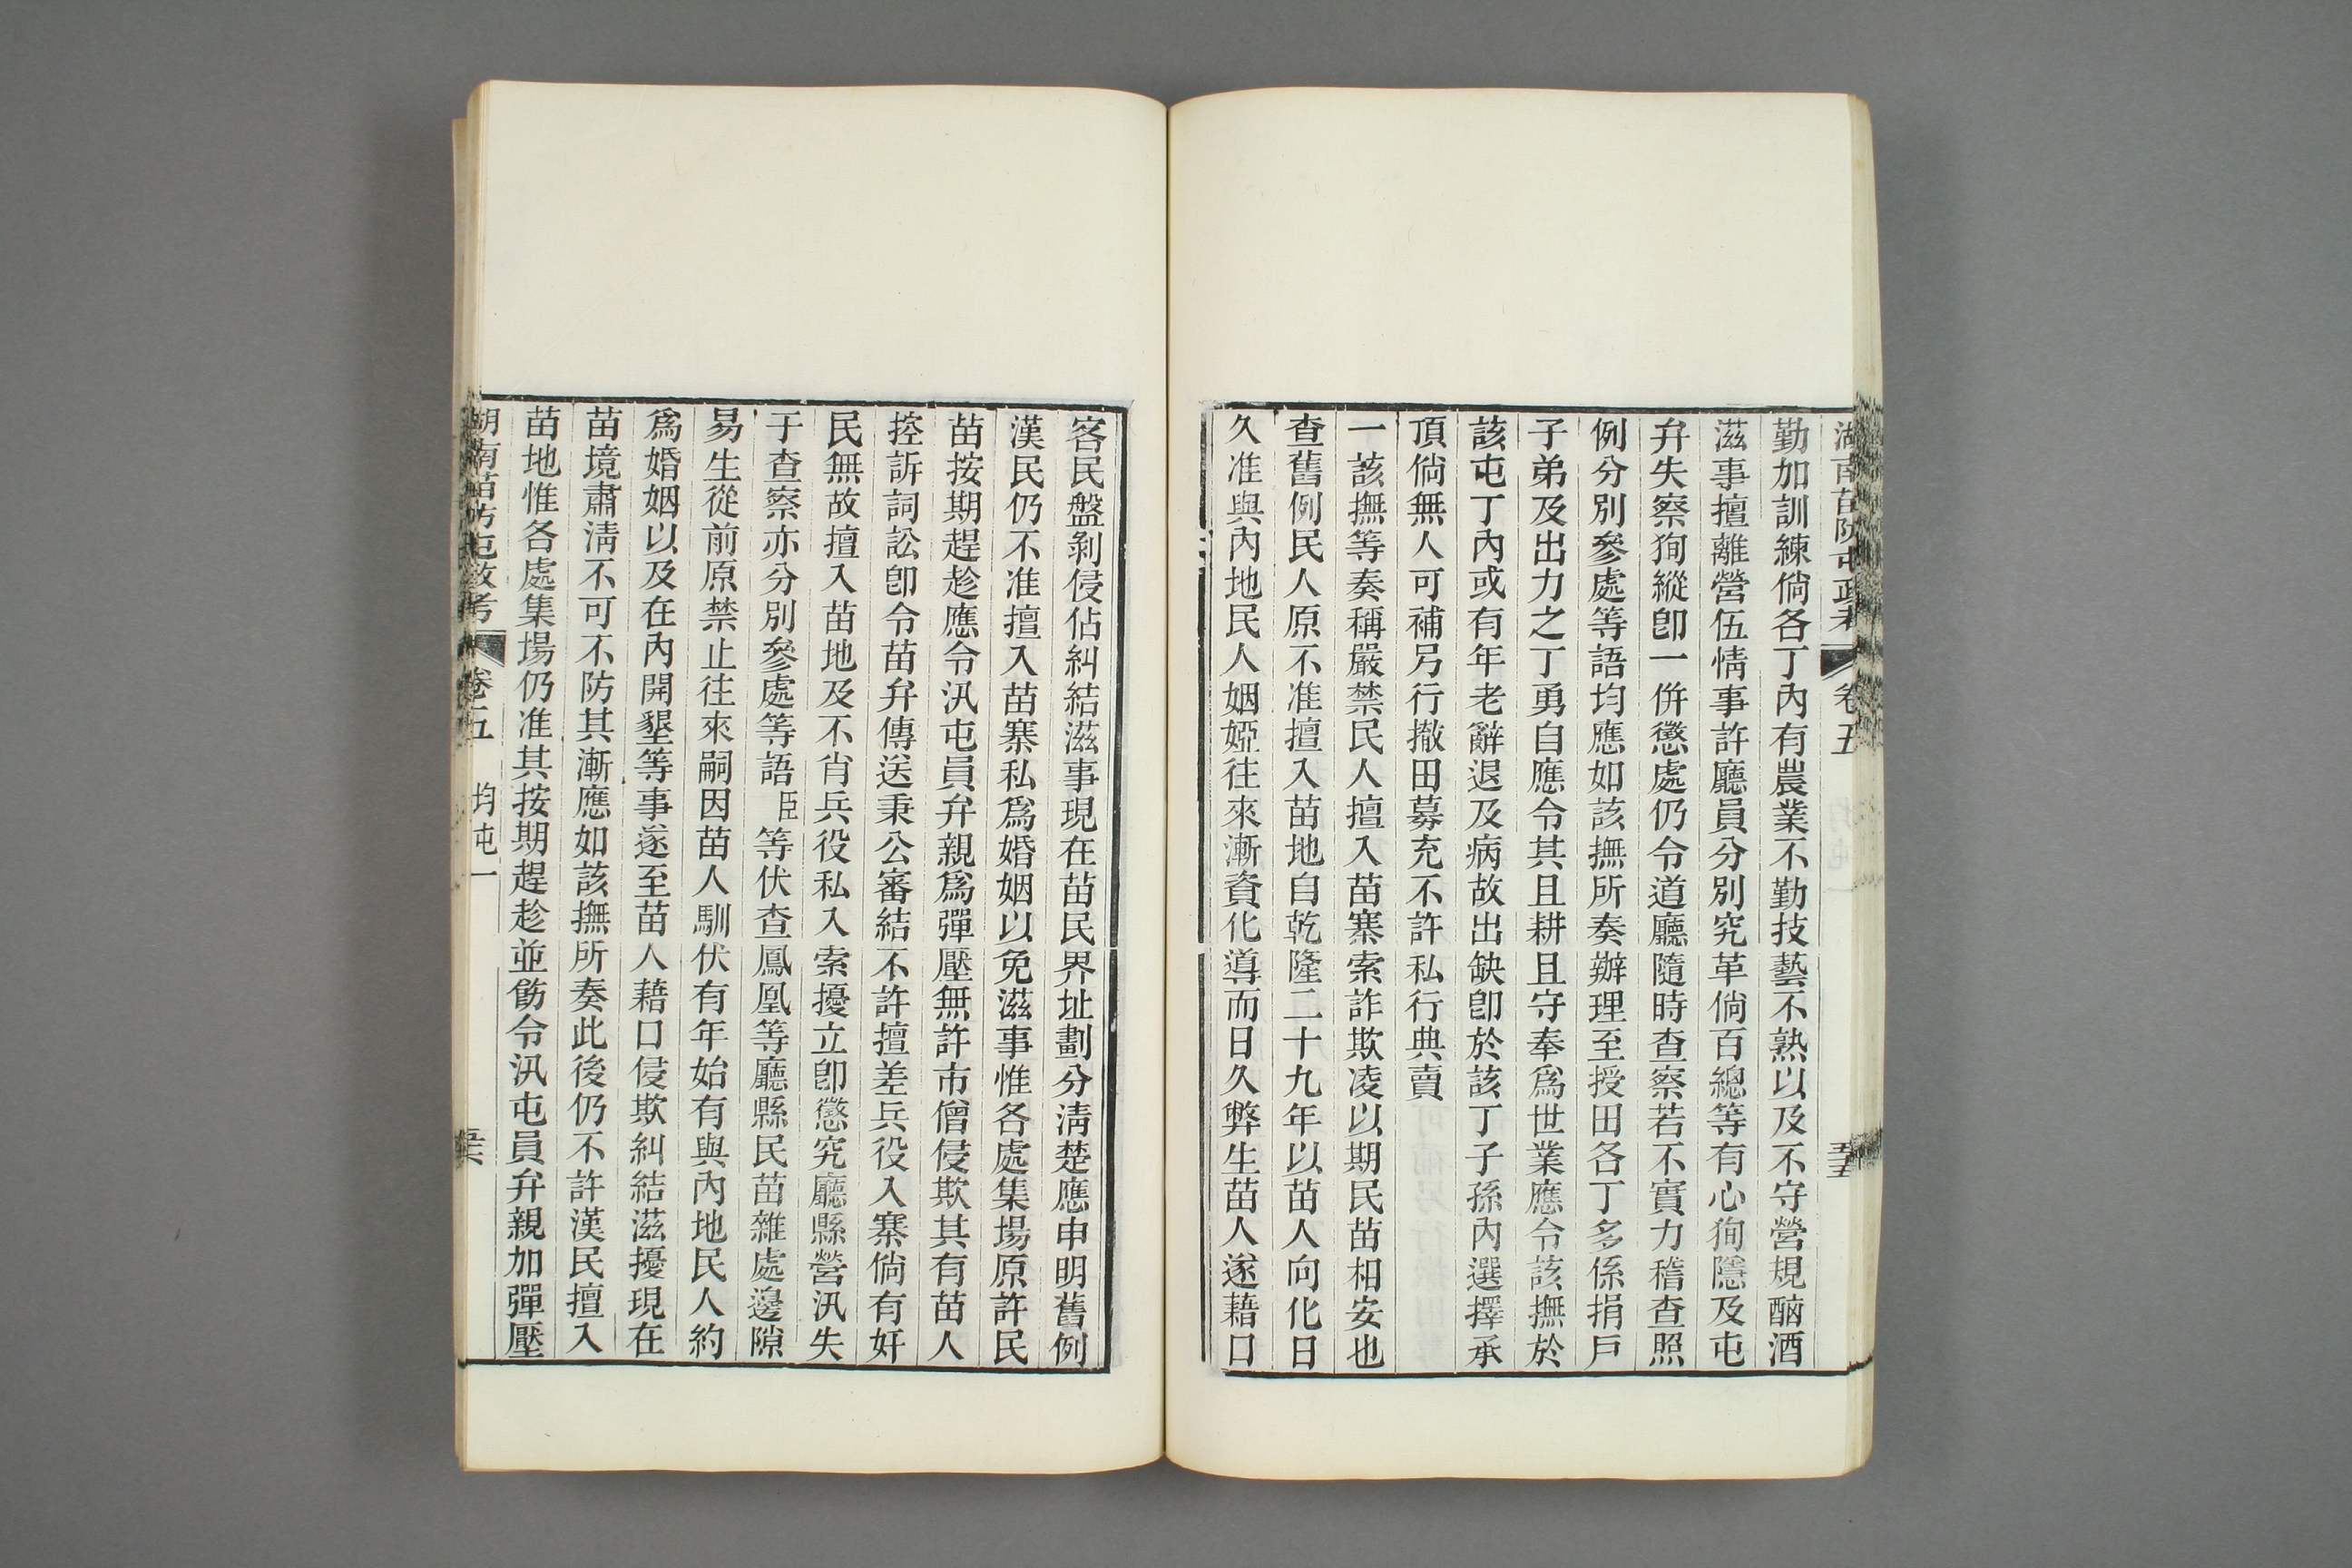 湖南苗防屯政考 卷五 五十五
勤加訓練倘各丁內有農業不勤技藝不熟以及不守營規酗酒
滋事擅離營伍情事許廳員分別究革倘百總等有心狥隱及屯
弁失察狥縱卽一倂懲處仍令道廳隨時查察若不實力稽查照
例分別參處等語均應如該撫所奏辦理至授田各丁多係捐戶
子弟及出力之丁勇自應令其且耕且守奉爲世業應令該撫於
該屯丁內或有年老辭退及病故出缺卽於該丁子孫內選擇承
頂倘無人可補另行撤田募充不許私行典賣
一該撫等奏稱嚴禁民人擅入苗寨索詐欺凌以期民苗相安也
查舊例民人原不准擅入苗地自乾隆二十九年以苗人向化日
久准與內地民人姻婭往來漸資化導而日久弊生苗人遂藉口
客民盤剝侵佔糾結滋事現在苗民界址劃分淸楚應申明舊例
漢民仍不准擅入苗寨私爲婚姻以免滋事惟各處集場原許民
苗按期趕趁應令汛屯員弁親爲彈壓無許市儈侵欺其有苗人
控訴詞訟卽令苗弁傳送秉公審結不許擅差兵役入寨倘有奸
民無故擅入苗地及不肖兵役私入索擾立卽懲究廳縣營汛失
于查察亦分別參處等語臣等伏查鳳凰等廳縣民苗雜處邊隙
易生從前原禁止往來嗣因苗人馴伏有年始有與內地民人約
爲婚姻以及在內開墾等事遂至苗人藉口侵欺糾結滋擾現在
苗境肅淸不可不防其漸應如該撫所奏此後仍不許漢民擅入
苗地惟各處集場仍准其按期趕趁並飭令汛屯員弁親加彈壓
湖南苗防屯政考 卷五 均屯一 五十六